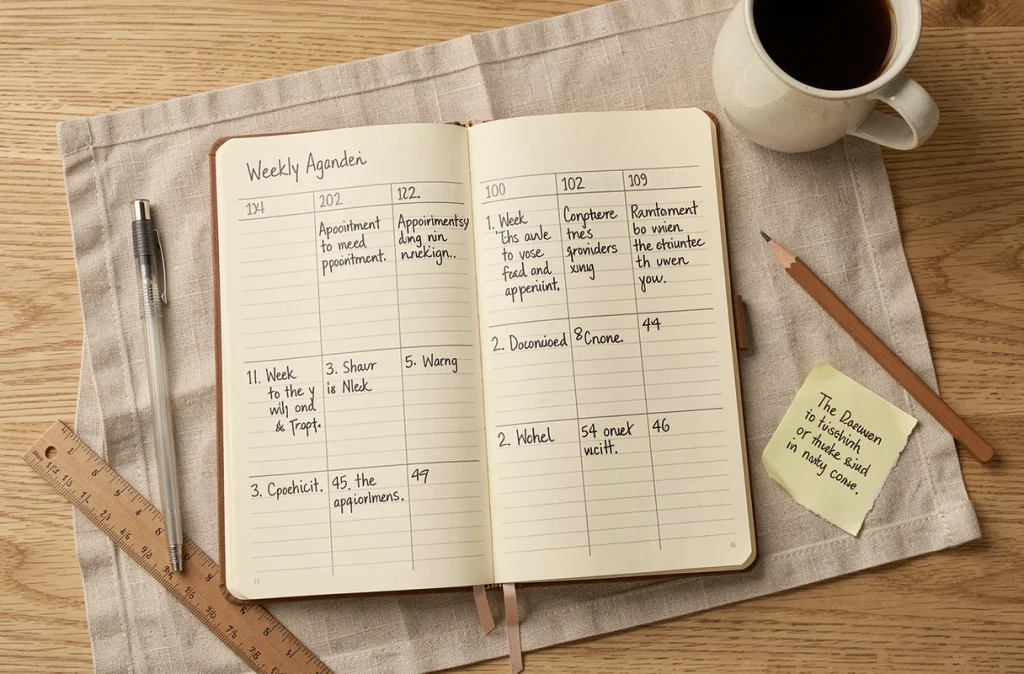 Weekly Aganderi
202
122.
Apoortment
to meed
ppointment.
Appoirimentsy
ding nin
11. Week
to the y
will ond
& Tropt.
3. Shaur
is Nlek
5. Warng
3. Cpoehicit.
45. the
apqiorlmens.
47
100
102
109
1. Week
Ths aule
to vose
food and
apperiint.
Conphere
tnes
providers
xung
Ramtorment
bo wien
the otriuntee
th uwen
you.
2. Doconioed
8 Cnone.
44
2. Wohel
54 onuet
vucitt.
46
The Daeuwen
to tisshinh
or thuke &ind
in naty cone.